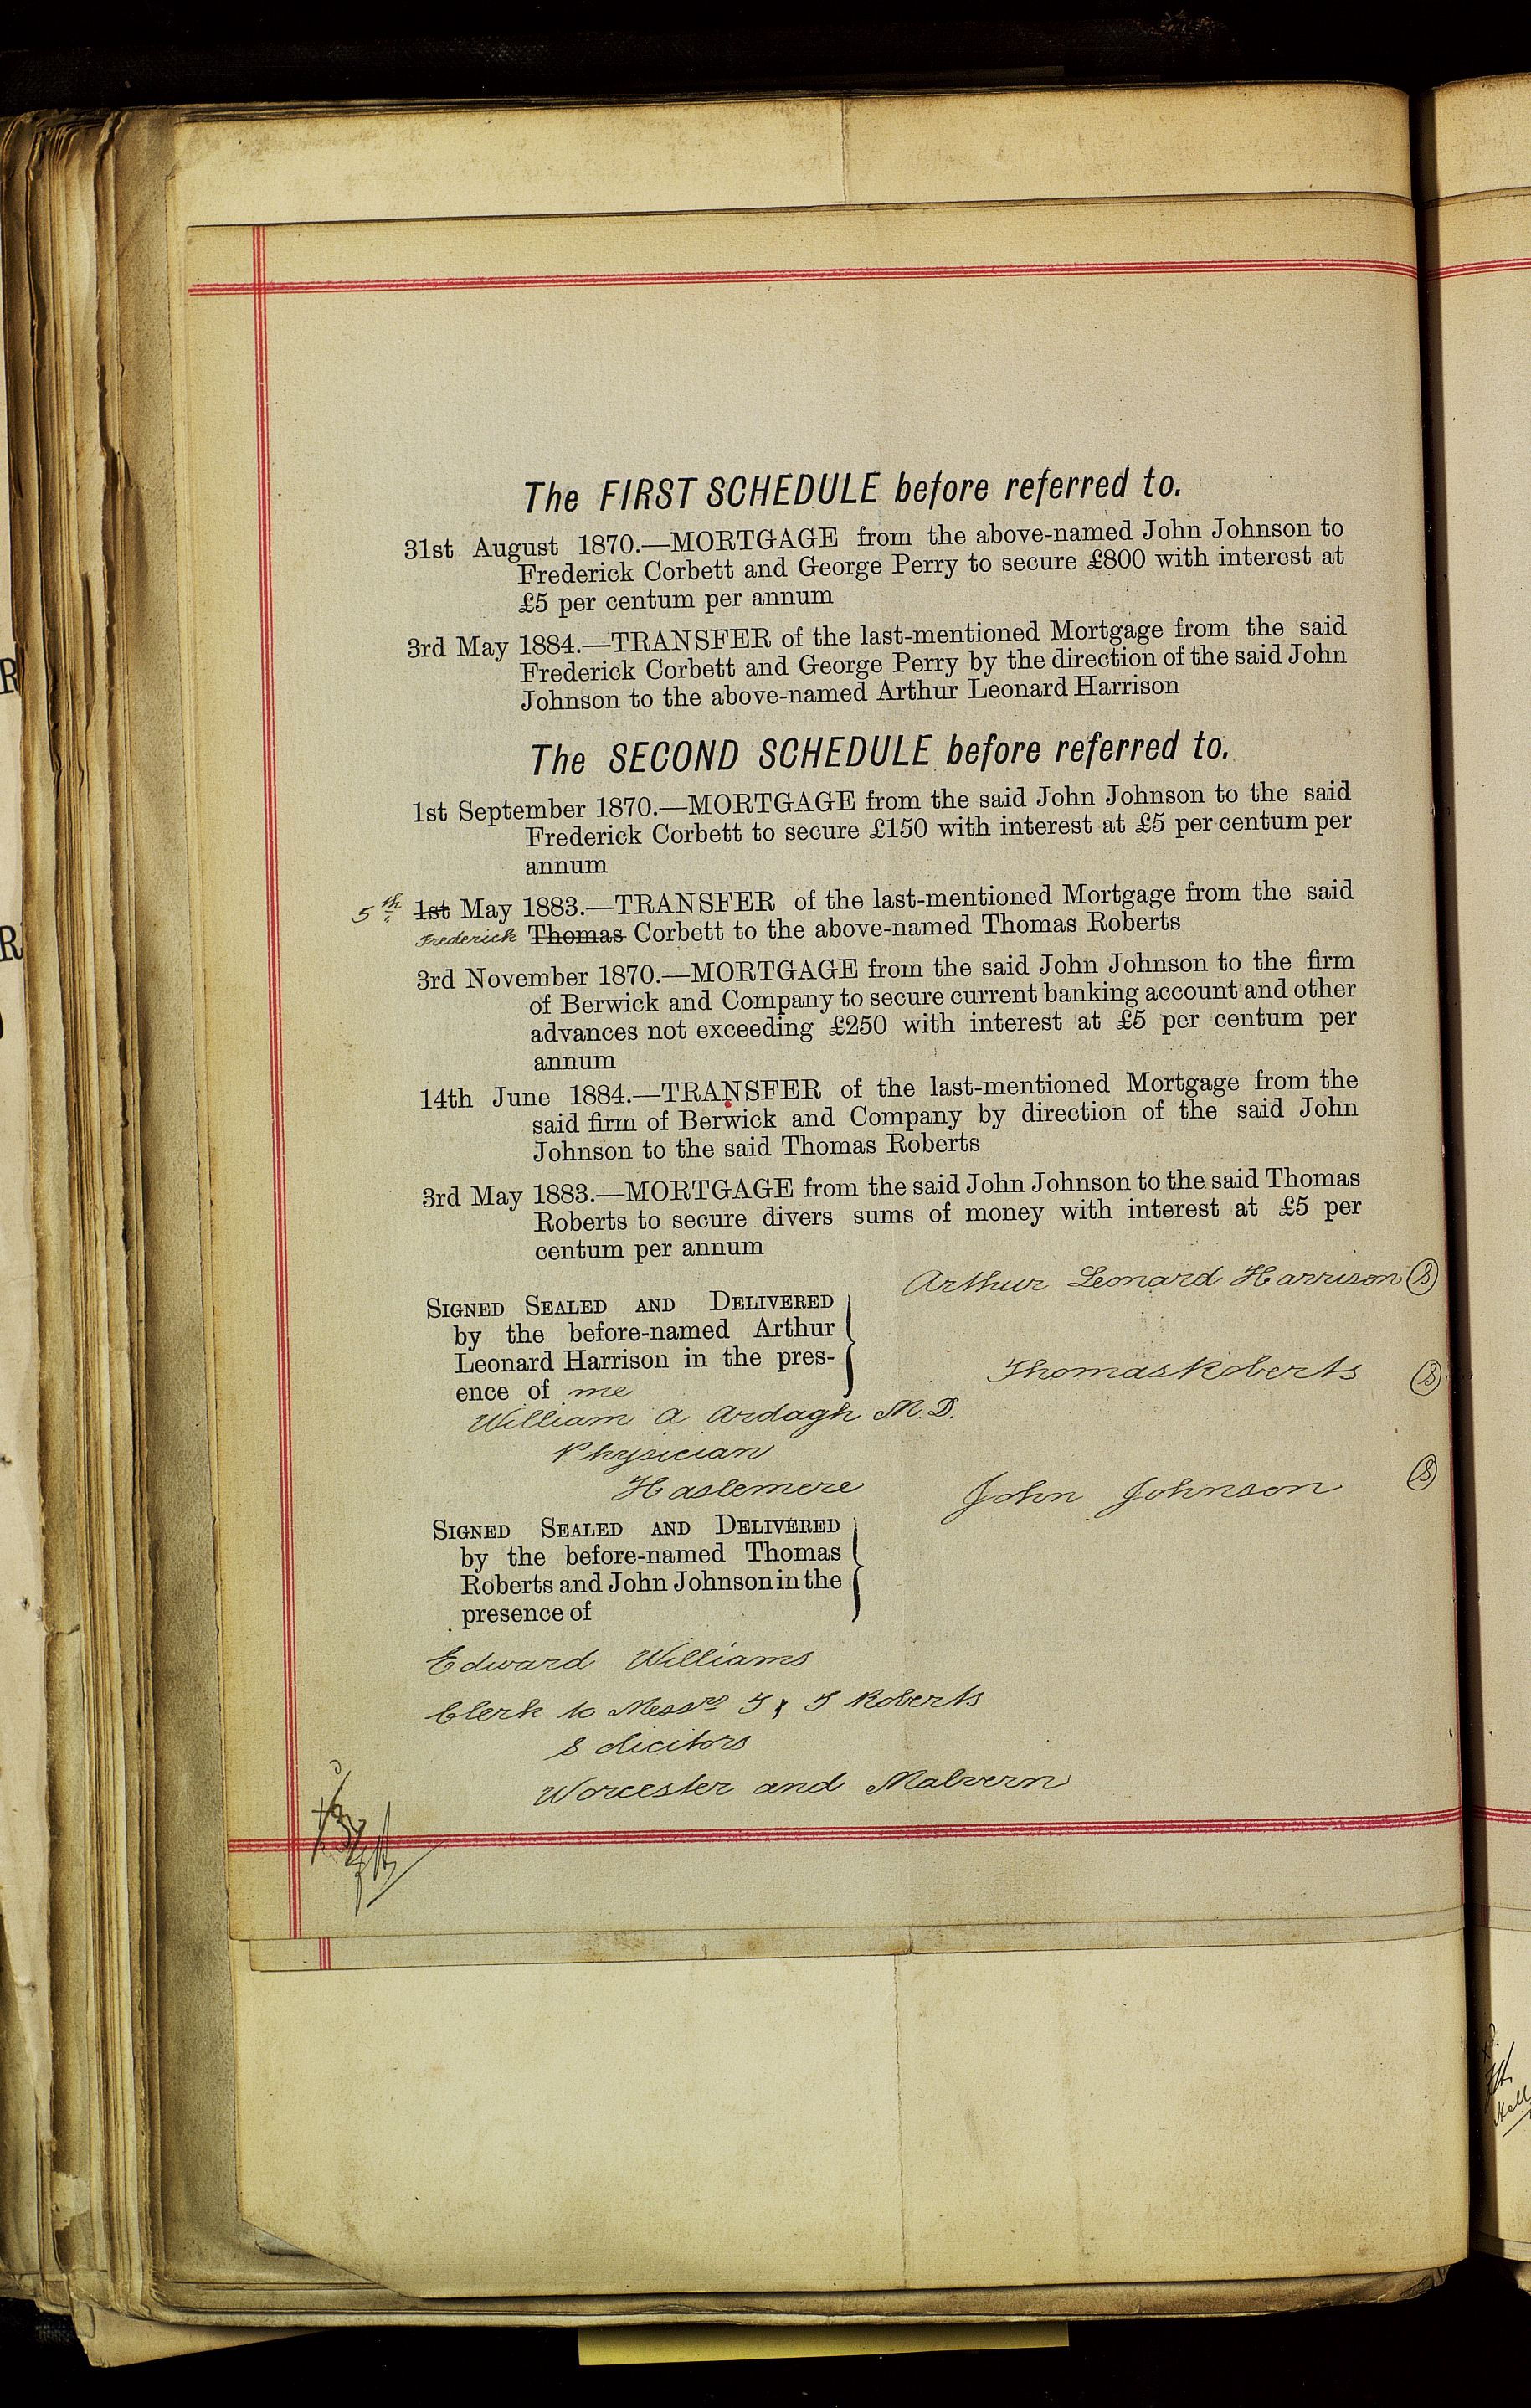 The FIRST SCHEDULE before referred to.
31st August 1870.—MORTGAGE from the above-named John Johnson to
Frederick Corbett and George Perry to secure £800 with interest at
£5 per centum per annum
3rd May 1884.—TRANSFER of the last-mentioned Mortgage from the said
Frederick Corbett and George Perry by the direction of the said John
Johnson to the above-named Arthur Leonard Harrison
The SECOND SCHEDULE before referred to.
1st September 1870.—MORTGAGE from the said John Johnson to the said
Frederick Corbett to secure £150 with interest at £5 per centum per
annum
5th 1st May 1883.—TRANSFER of the last-mentioned Mortgage from the said
Frederick Thomas Corbett to the above-named Thomas Roberts
3rd November 1870.—MORTGAGE from the said John Johnson to the firm
of Berwick and Company to secure current banking account and other
advances not exceeding £250 with interest at £5 per centum per
annum
14th June 1884.—TRANSFER of the last-mentioned Mortgage from the
said firm of Berwick and Company by direction of the said John
Johnson to the said Thomas Roberts
3rd May 1883.—MORTGAGE from the said John Johnson to the said Thomas
Roberts to secure divers sums of money with interest at £5 per
centum per annum
Arthur Leonard Harrison S
SIGNED SEALED AND DELIVERED
by the before-named Arthur
Leonard Harrison in the pres-
ence of me
Thomas Roberts S
William A Ardagh M.D.
Physician
Haslemere
John Johnson S
SIGNED SEALED AND DELIVERED
by the before-named Thomas
Roberts and John Johnson in the
presence of
Edward Williams
Clerk to Messrs T & T Roberts
Solicitors
Worcester and Malvern